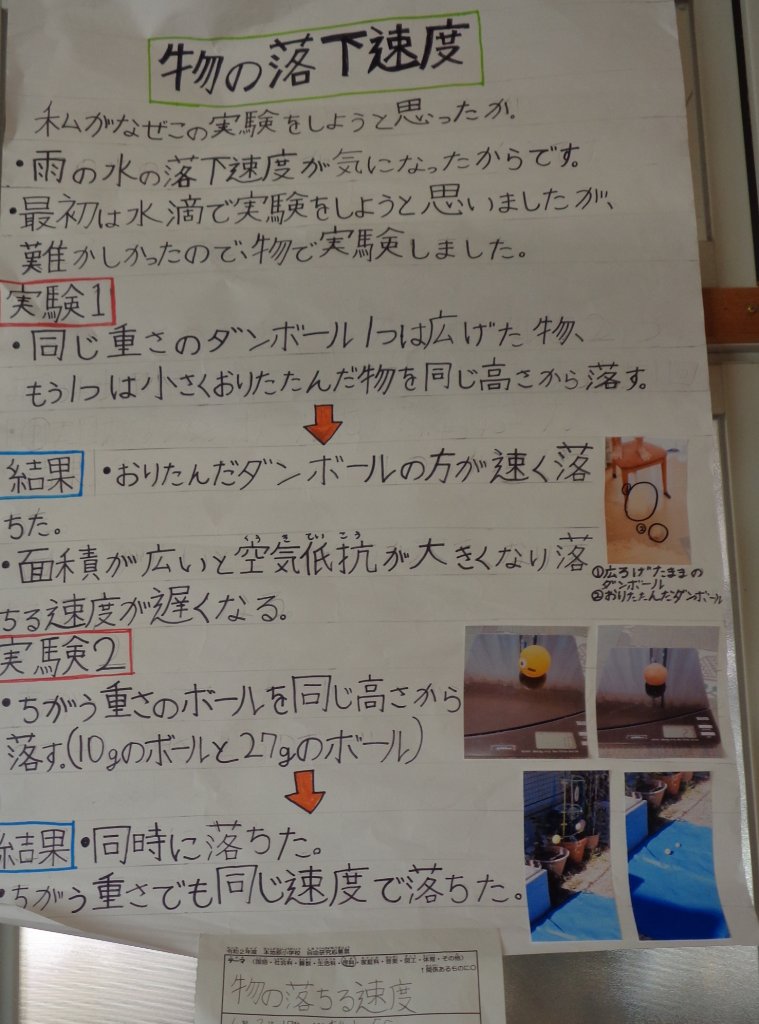 物の落下速度
私がなぜこの実験をしようと思ったか。
・雨の水の落下速度が気になったからです。
・最初は水滴で実験をしようと思いましたが、
難かしかったので、物で実験しました。
実験1
・同じ重さのダンボール1つは広げた物、
もう1つは小さくおりたたんだ物を同じ高さから落す。
結果 ・おりたんだダンボールの方が速く落
ちた。
・面積が広いと空気低抗が大きくなり落
くう き てい こう
ちる速度が遅くなる。
① ②
①広ろげたままの
ダンボール
②おりたたんだダンボール
実験2
・ちがう重さのボールを同じ高さから
落す。(10gのボールと27gのボール)
結果 ・同時に落ちた。
・ちがう重さでも同じ速度で落ちた。
テーマ (国語・社会科・算数・生活科・理科・家庭科・音楽・図工・体育・その他)
↑関係あるものに○
物の落ちる速度